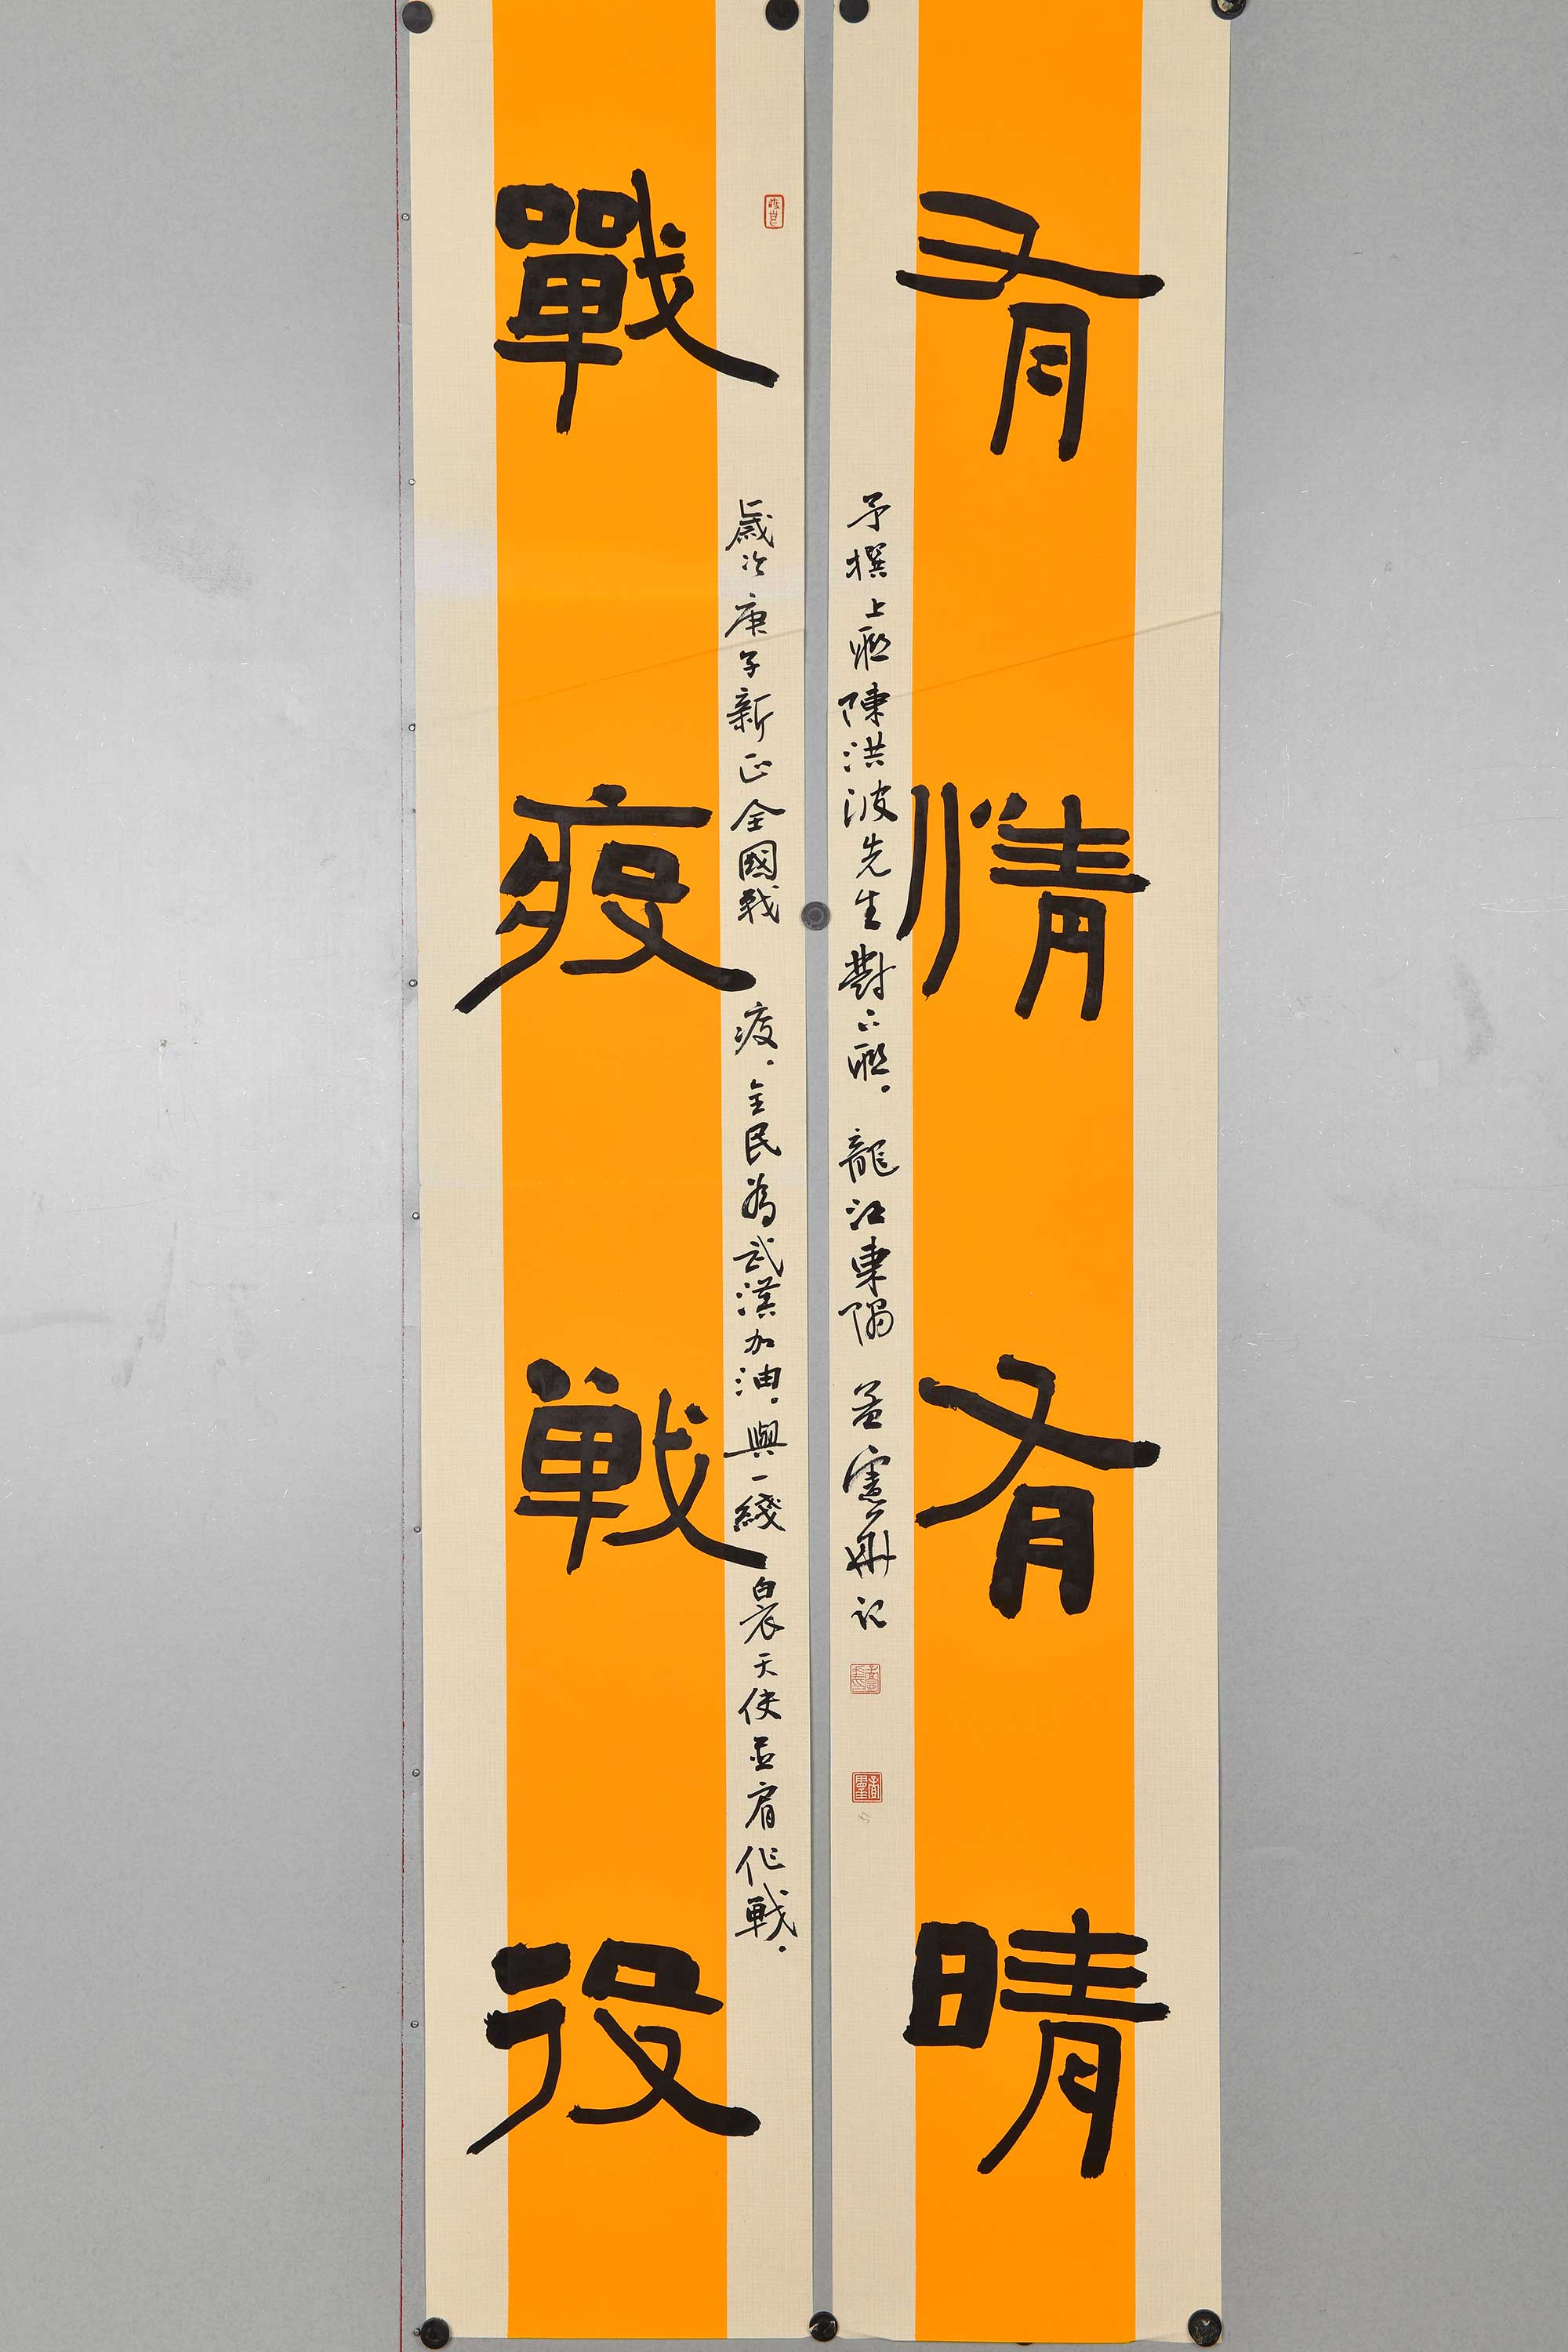 有情有晴
予撰上聯陳洪波先生對下聯。龍江東隅孟憲記
歲次庚子新正全國戰疫。全民為武漢加油。與一綫白衣天使並肩作戰。
戰疫戰役